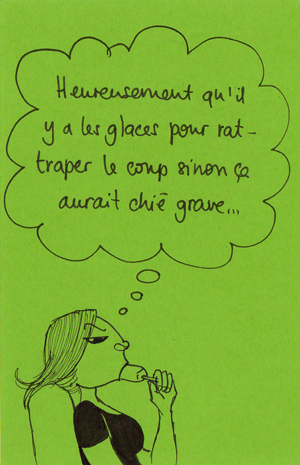 Heureusement qu'il
y a les glaces pour rat-
traper le coup sinon ça
aurait chié grave...